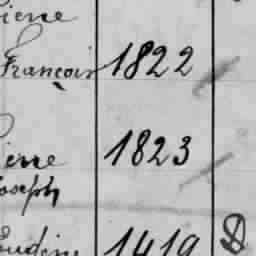 ierre
François 1822
ierre 1823
Joseph
1419